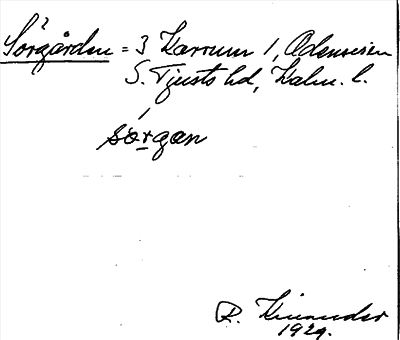 Sörgården = 3 Karrum 1, Odensvi sn
S. Tjusts hd, Kalm. l.
sörgan
R. Kinander
1929.